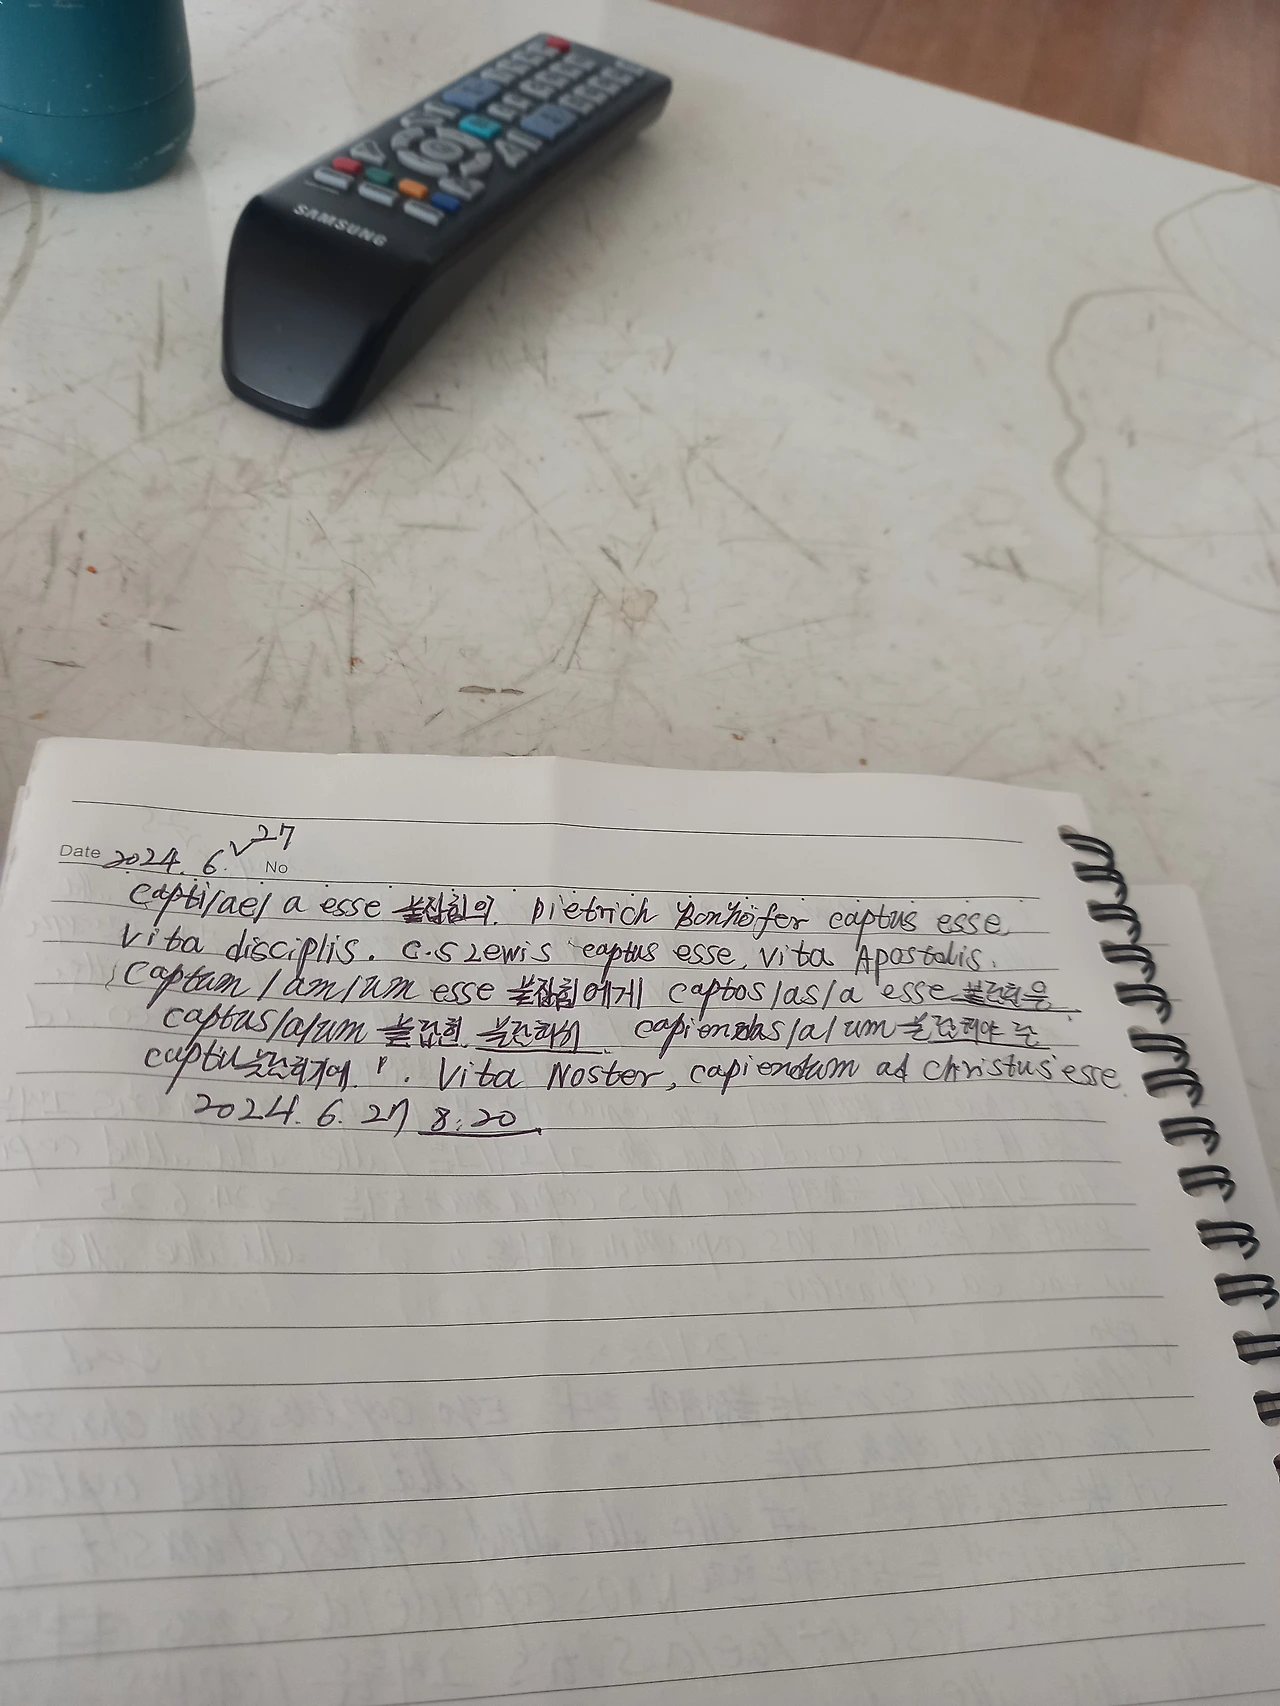 SAMSUNG
27
Date 2024. 6. No
capti/ae/a esse 붙잡힘의. Dietrich Bonhöfer captus esse,
Vita disciplis. C.S Lewis captus esse, Vita Apostolis.
captum/am/um esse 붙잡힘에게 captos/as/a esse 붙잡힘을
captus/a/um 붙잡힌 capiendus/a/um
captu . Vita Noster, capiendum ad christus esse
2024. 6. 27 8:20